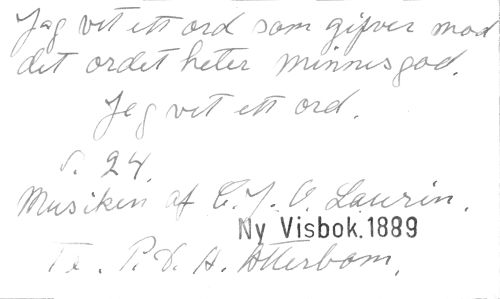 Jag vet ett ord som gifver mod
det ordet heter minnesgod.
Jag vet ett ord.
s. 24.
Musiken af C. J. O. Laurin.
Ny Visbok. 1889
Te. P. D. A. Atterbom.